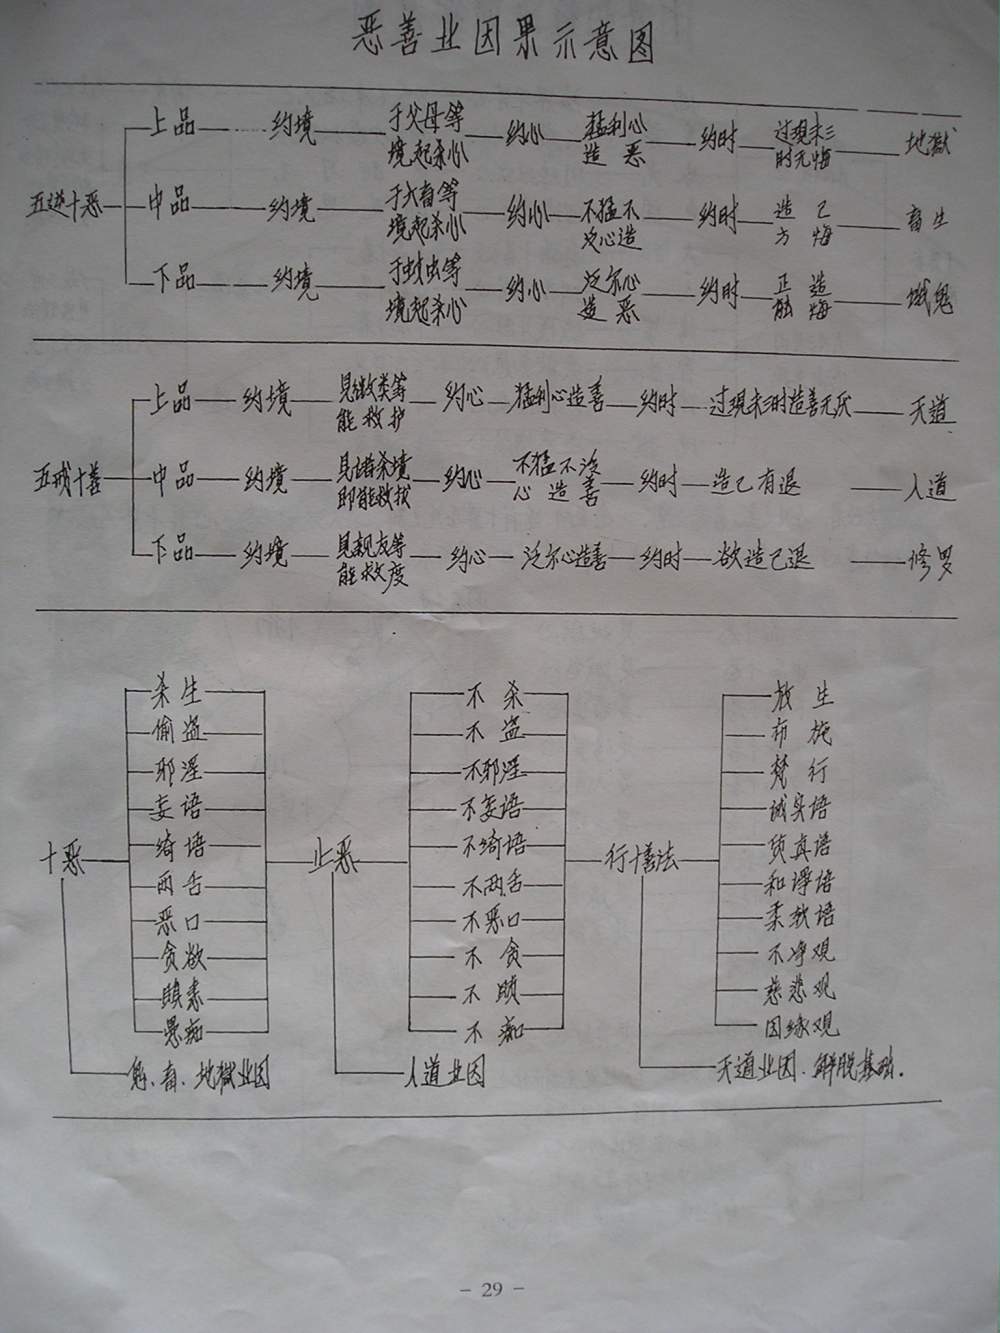 恶善业因果示意图
上品 约境 于父母等境起杀心 约心 猛利心造恶 约时 过现未三时无悔 地獄
五逆十恶 中品 约境 于六畜等境起杀心 约心 不猛不没心造 约时 造已方悔 畜生
下品 约境 于蚊虫等境起杀心 约心 泛尔心造恶 约时 正造能悔 饿鬼
上品 约境 見微类等能救护 约心 猛利心造善 约时 过现未三时造善无厌 天道
五戒十善 中品 约境 見诸杀境即能救护 约心 不猛不没心造善 约时 造已有退 人道
下品 约境 見親友等能救度 约心 泛尔心造善 约时 欲造已退 修罗
杀生 不杀 放生
偷盗 不盗 布施
邪淫 不邪淫 梵行
妄语 不妄语 诚实语
绮语 不绮语 质真语
十恶 止恶 行十善法
两舌 不两舌 和諍语
恶口 不恶口 柔软语
贪欲 不贪 不净观
瞋恚 不瞋 慈悲观
愚痴 不痴 因缘观
鬼、畜、地獄业因 人道业因 天道业因、解脱基础.
- 29 -